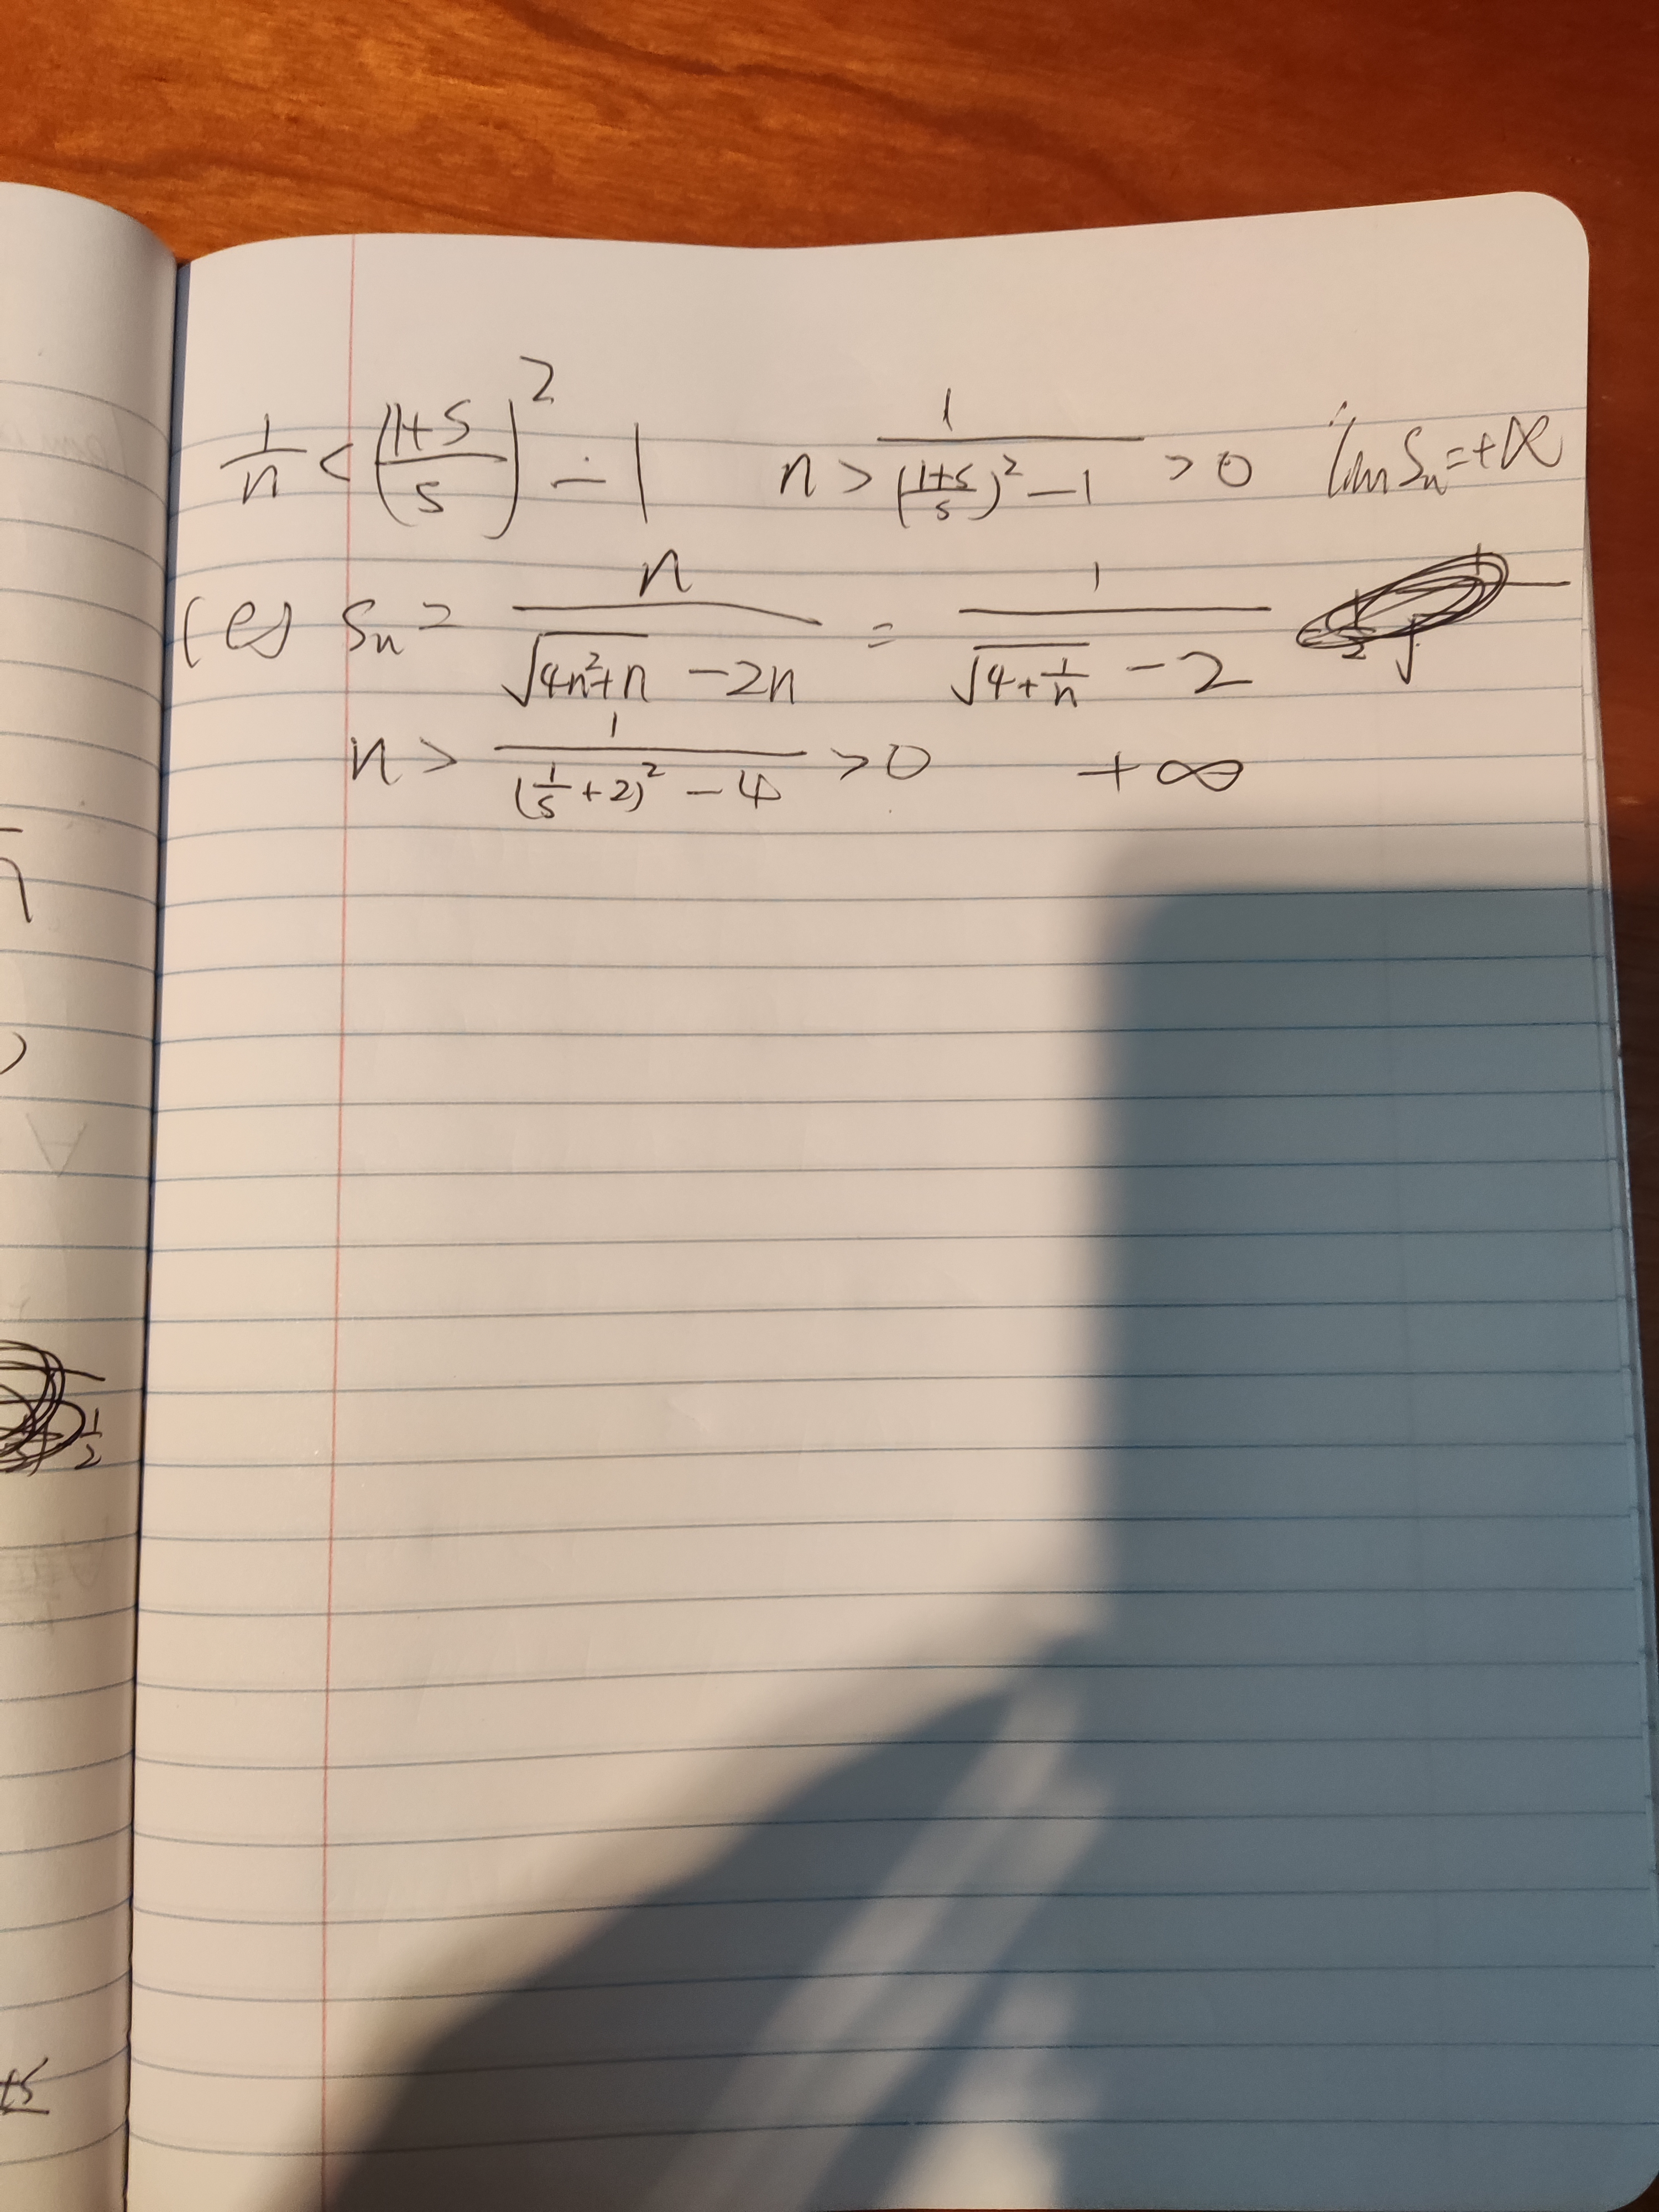 1/n < ((1+s)/s)² - 1 n > 1/(((1+s)/s)² - 1) > 0 lim Sn = +∞
(e) Sn = n/(√(4n²+n) - 2n) = 1/(√(4+1/n) - 2)
n > 1/((1/s + 2)² - 4) > 0 +∞
1/2
+s